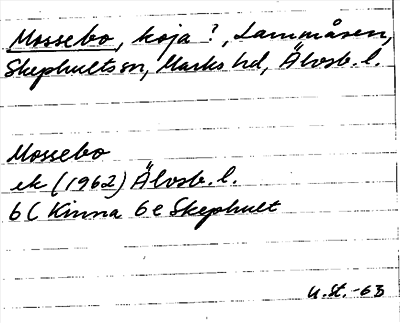 Mossebo, koja?, Lammåsen,
Skephults sn, Marks hd, Älvsb. l.
Mossebo
ek (1962) Älvsb. l.
6C Kinna 6e Skephult
U.St. -63